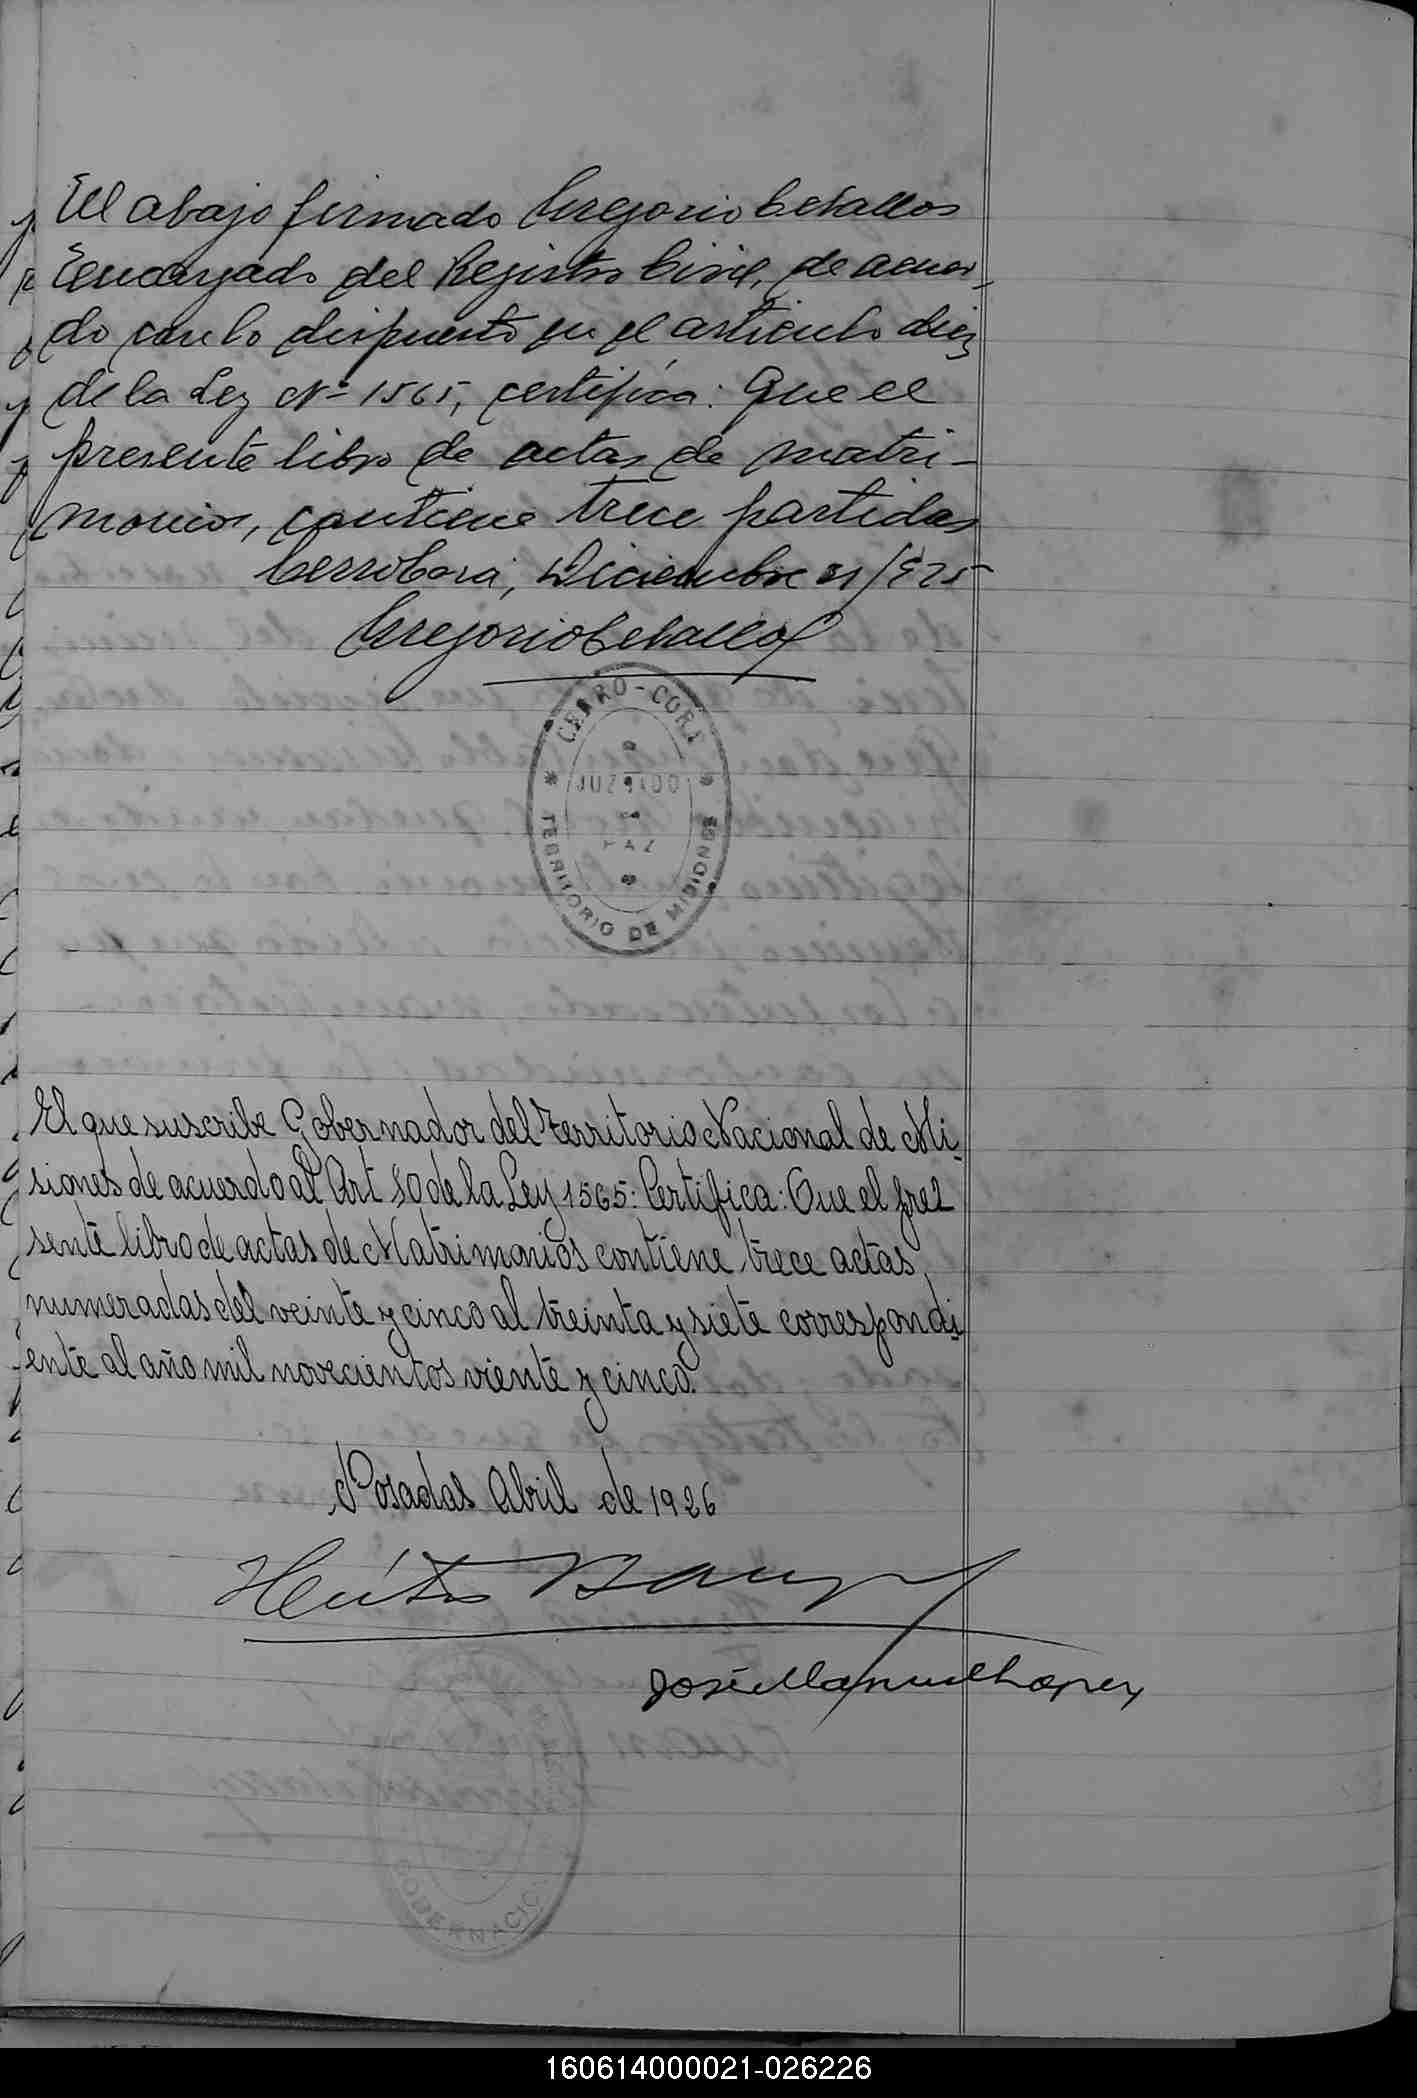 El abajo firmado Gregorio Cevallos
Encargado del Registro Civil, de acuer-
do con lo dispuesto en el articulo diez
de la Ley Nº 1565, certifica: Que el
presente libro de actas de matri-
monios, contiene trece partidas
Cerro Corá, Diciembre 31/925
Gregorio Cevallos
CERRO-CORÁ
JUZGADO
DE
PAZ
TERRITORIO DE MISIONES
El que suscribe Gobernador del Territorio Nacional de Mi-
siones de acuerdo al Art 10 de la Ley 1565: Certifica: Que el pre=
sente libro de actas de Matrimonios contiene trece actas,
numeradas del veinte y cinco al treinta y siete correspondi-
ente al año mil novecientos viente y cinco.
Posadas Abril de 1926
Héctor
José Manuel Lopez
GOBERNACIÓ
160614000021-026226